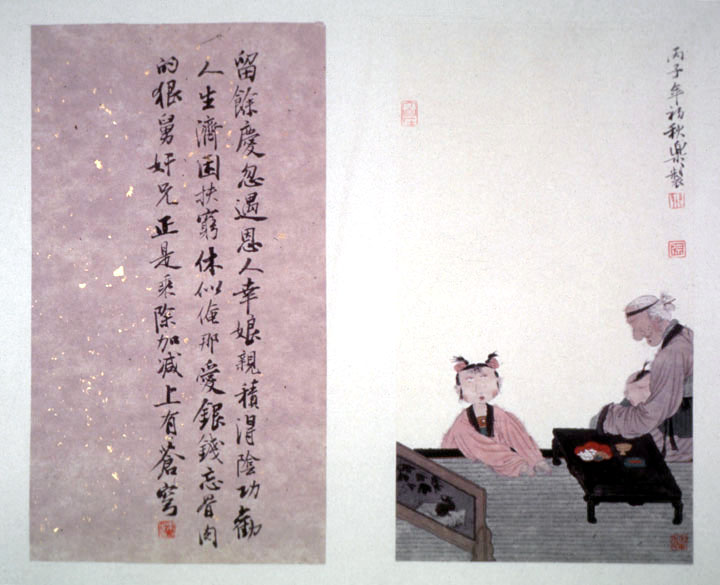 丙子年初秋樂製
留餘慶忽遇恩人幸娘親積得陰功勸
人生濟困扶窮休似俺那愛銀錢忘骨肉
的狠舅奸兄正是乘除加減上有蒼穹